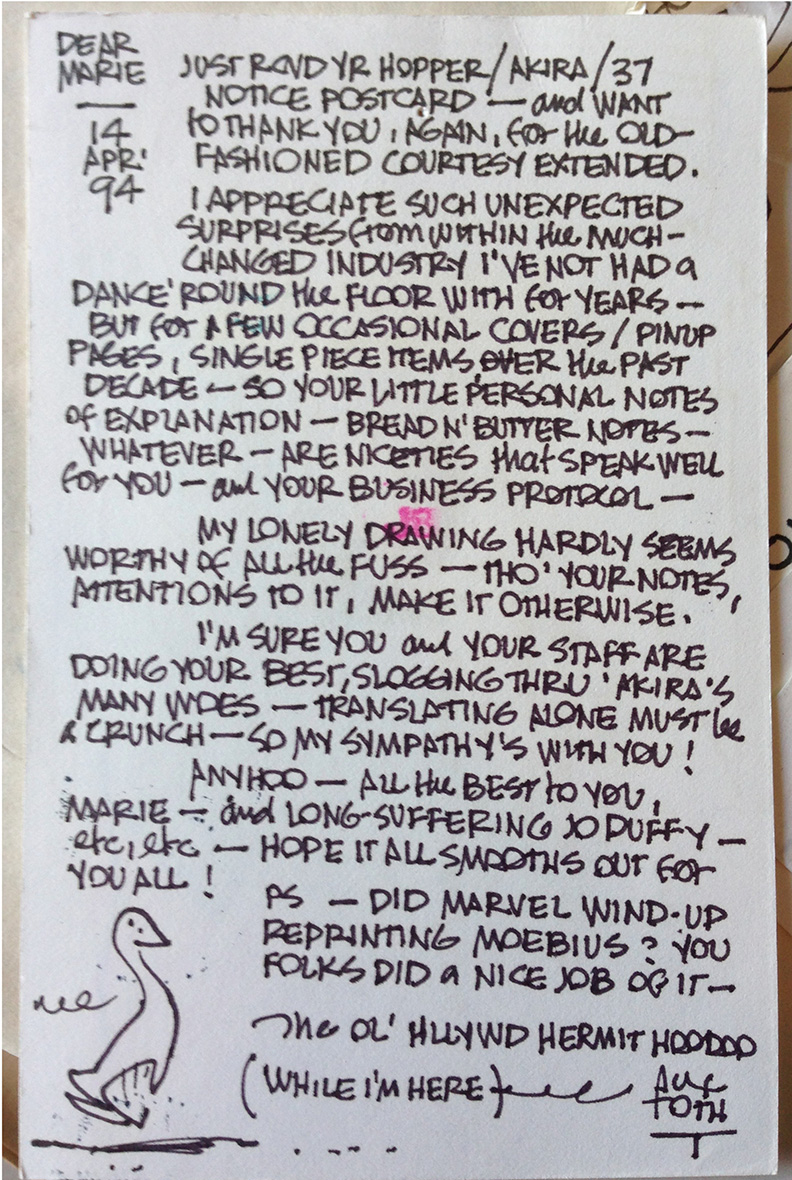 DEAR
MARIE
—
14
APR'
94
JUST RCVD YR HOPPER/AKIRA/37
NOTICE POSTCARD — and WANT
TO THANK YOU, AGAIN, for the OLD-
FASHIONED COURTESY EXTENDED.
I APPRECIATE SUCH UNEXPECTED
SURPRISES from WITHIN the MUCH-
CHANGED INDUSTRY I'VE NOT HAD a
DANCE 'ROUND the FLOOR WITH for YEARS —
BUT for A FEW OCCASIONAL COVERS / PINUP
PAGES, SINGLE PIECE ITEMS OVER the PAST
DECADE — SO YOUR LITTLE PERSONAL NOTES
of EXPLANATION — BREAD N' BUTTER NOTES —
WHATEVER — ARE NICETIES that SPEAK WELL
for YOU — and YOUR BUSINESS PROTOCOL —
MY LONELY DRAWING HARDLY SEEMS
WORTHY OF ALL the FUSS — THO' YOUR NOTES,
ATTENTIONS TO IT, MAKE IT OTHERWISE.
I'M SURE YOU and YOUR STAFF ARE
DOING YOUR BEST, SLOGGING THRU 'AKIRA'S
MANY WOES — TRANSLATING ALONE MUST be
a CRUNCH — SO MY SYMPATHY'S WITH YOU!
ANYHOO — ALL the BEST to YOU,
MARIE — and LONG-SUFFERING JO DUFFY —
etc, etc — HOPE IT ALL SMOOTHS OUT for
YOU ALL!
PS — DID MARVEL WIND-UP
REPRINTING MOEBIUS? YOU
FOLKS DID a NICE JOB OF IT —
me
The OL' HLLYWD HERMIT HOODOO
(WHILE I'M HERE)
ALEX
TOTH